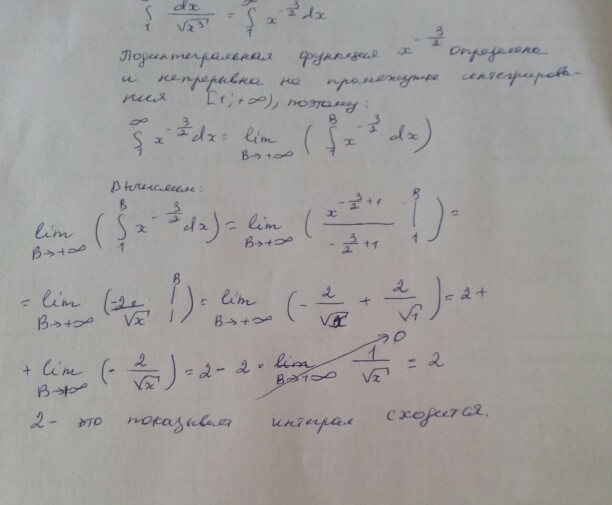 ∫₁^∞ dx/√x³ = ∫₁^∞ x^(-3/2) dx
Подинтегральная функция x^(-3/2) определена
и непрерывна на промежутке интегрирова-
ния [1; +∞), поэтому:
∫₁^∞ x^(-3/2) dx = lim B→+∞ (∫₁^B x^(-3/2) dx)
Вычислим:
lim B→+∞ (∫₁^B x^(-3/2) dx) = lim B→+∞ (x^(-3/2+1)/(-3/2+1) |₁^B) =
= lim B→+∞ (-2/√x |₁^B) = lim B→+∞ (-2/√x + 2/√1) = 2 +
+ lim B→+∞ (-2/√x) = 2 - 2 · lim B→+∞ 1/√x → 0 = 2
2 - это показывает интеграл сходится.